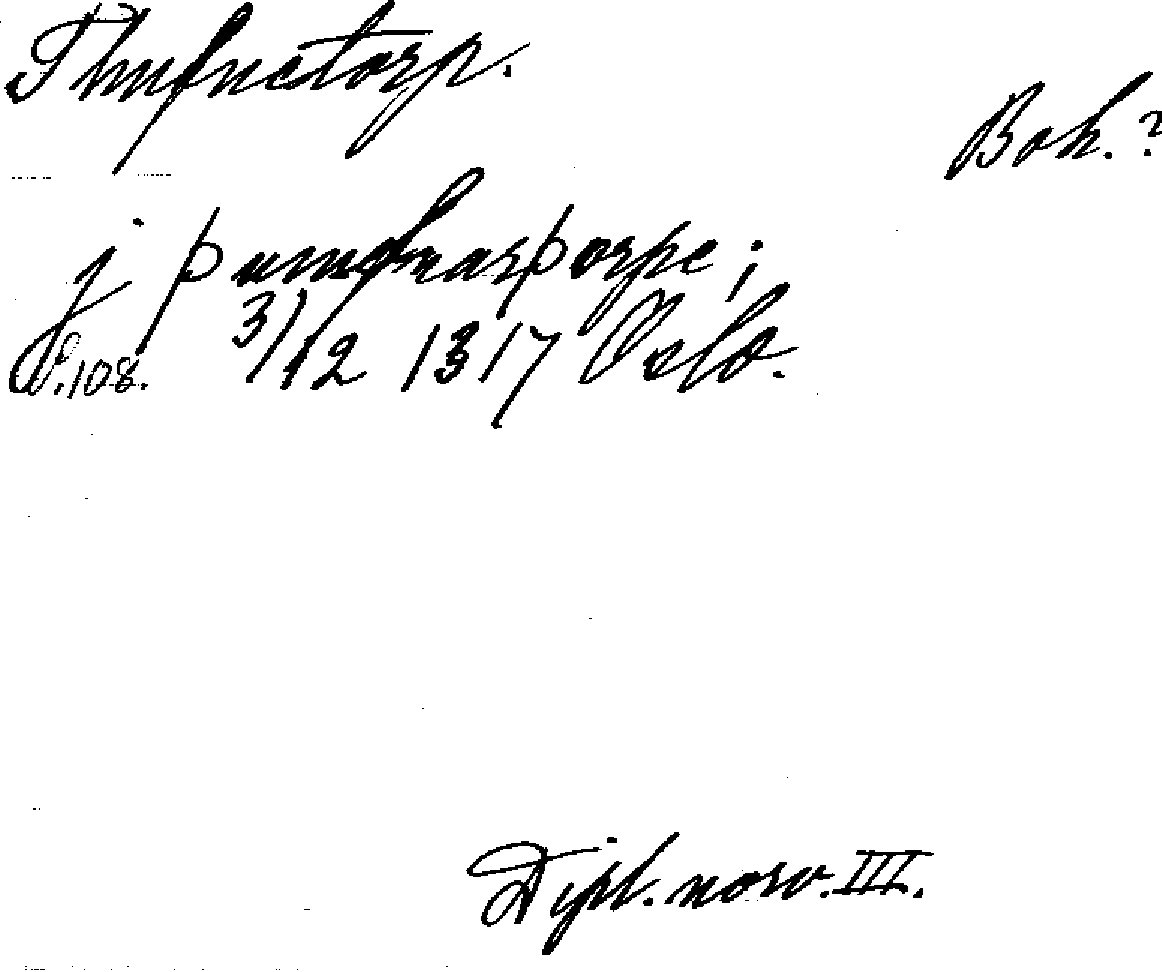 Thmfnetorp.
Boh.?
j þumofnarþorpe;
P.108. 3/12 1317 Oslo.
Dipl. norv. III.